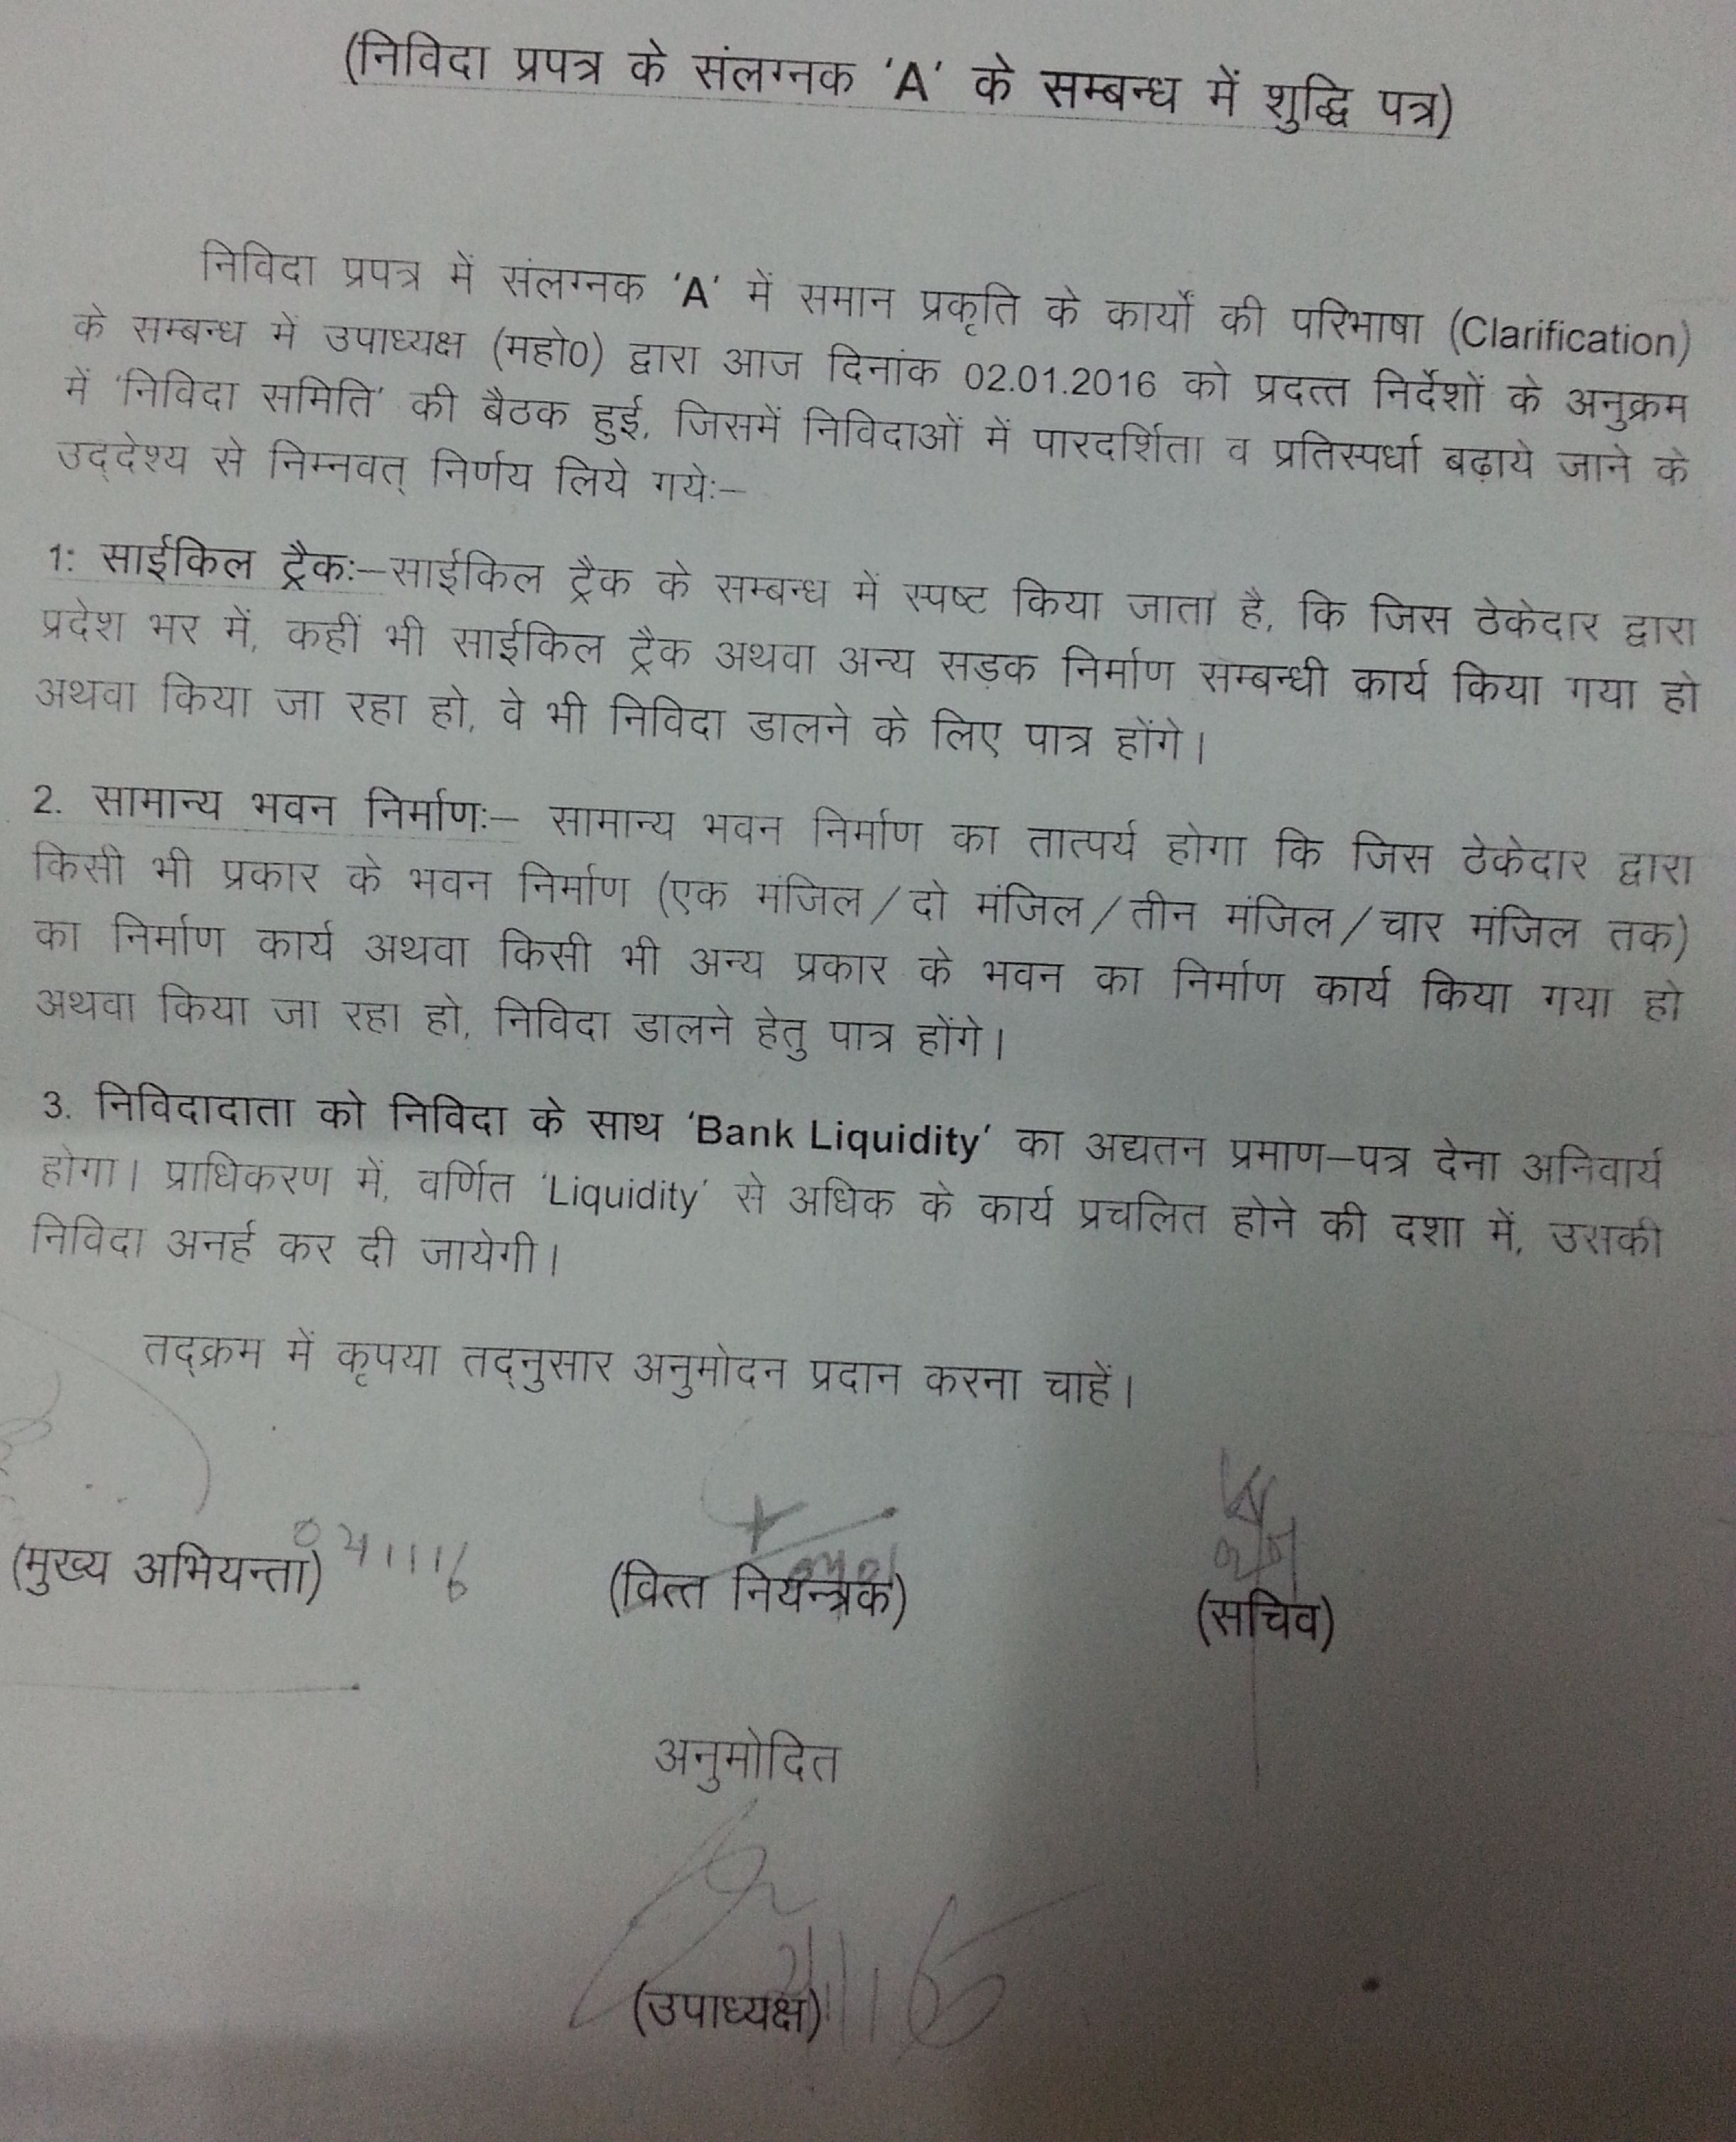 (निविदा प्रपत्र के संलग्नक ‘A’ के सम्बन्ध में शुद्धि पत्र)
निविदा प्रपत्र में संलग्नक ‘A’ में समान प्रकृति के कार्यों की परिभाषा (Clarification)
के सम्बन्ध में उपाध्यक्ष (महो0) द्वारा आज दिनांक 02.01.2016 को प्रदत्त निर्देशों के अनुक्रम
में ‘निविदा समिति’ की बैठक हुई, जिसमें निविदाओं में पारदर्शिता व प्रतिस्पर्धा बढ़ाये जाने के
उद्देश्य से निम्नवत् निर्णय लिये गयेः–
1: साईकिल ट्रैकः–साईकिल ट्रैक के सम्बन्ध में स्पष्ट किया जाता है, कि जिस ठेकेदार द्वारा
प्रदेश भर में, कहीं भी साईकिल ट्रैक अथवा अन्य सड़क निर्माण सम्बन्धी कार्य किया गया हो
अथवा किया जा रहा हो, वे भी निविदा डालने के लिए पात्र होंगे।
2. सामान्य भवन निर्माणः– सामान्य भवन निर्माण का तात्पर्य होगा कि जिस ठेकेदार द्वारा
किसी भी प्रकार के भवन निर्माण (एक मंजिल/दो मंजिल/तीन मंजिल/चार मंजिल तक)
का निर्माण कार्य अथवा किसी भी अन्य प्रकार के भवन का निर्माण कार्य किया गया हो
अथवा किया जा रहा हो, निविदा डालने हेतु पात्र होंगे।
3. निविदादाता को निविदा के साथ ‘Bank Liquidity’ का अद्यतन प्रमाण–पत्र देना अनिवार्य
होगा। प्राधिकरण में, वर्णित ‘Liquidity’ से अधिक के कार्य प्रचलित होने की दशा में, उसकी
निविदा अनर्ह कर दी जायेगी।
तद्क्रम में कृपया तद्नुसार अनुमोदन प्रदान करना चाहें।
(मुख्य अभियन्ता) (वित्त नियन्त्रक) (सचिव)
अनुमोदित
(उपाध्यक्ष)